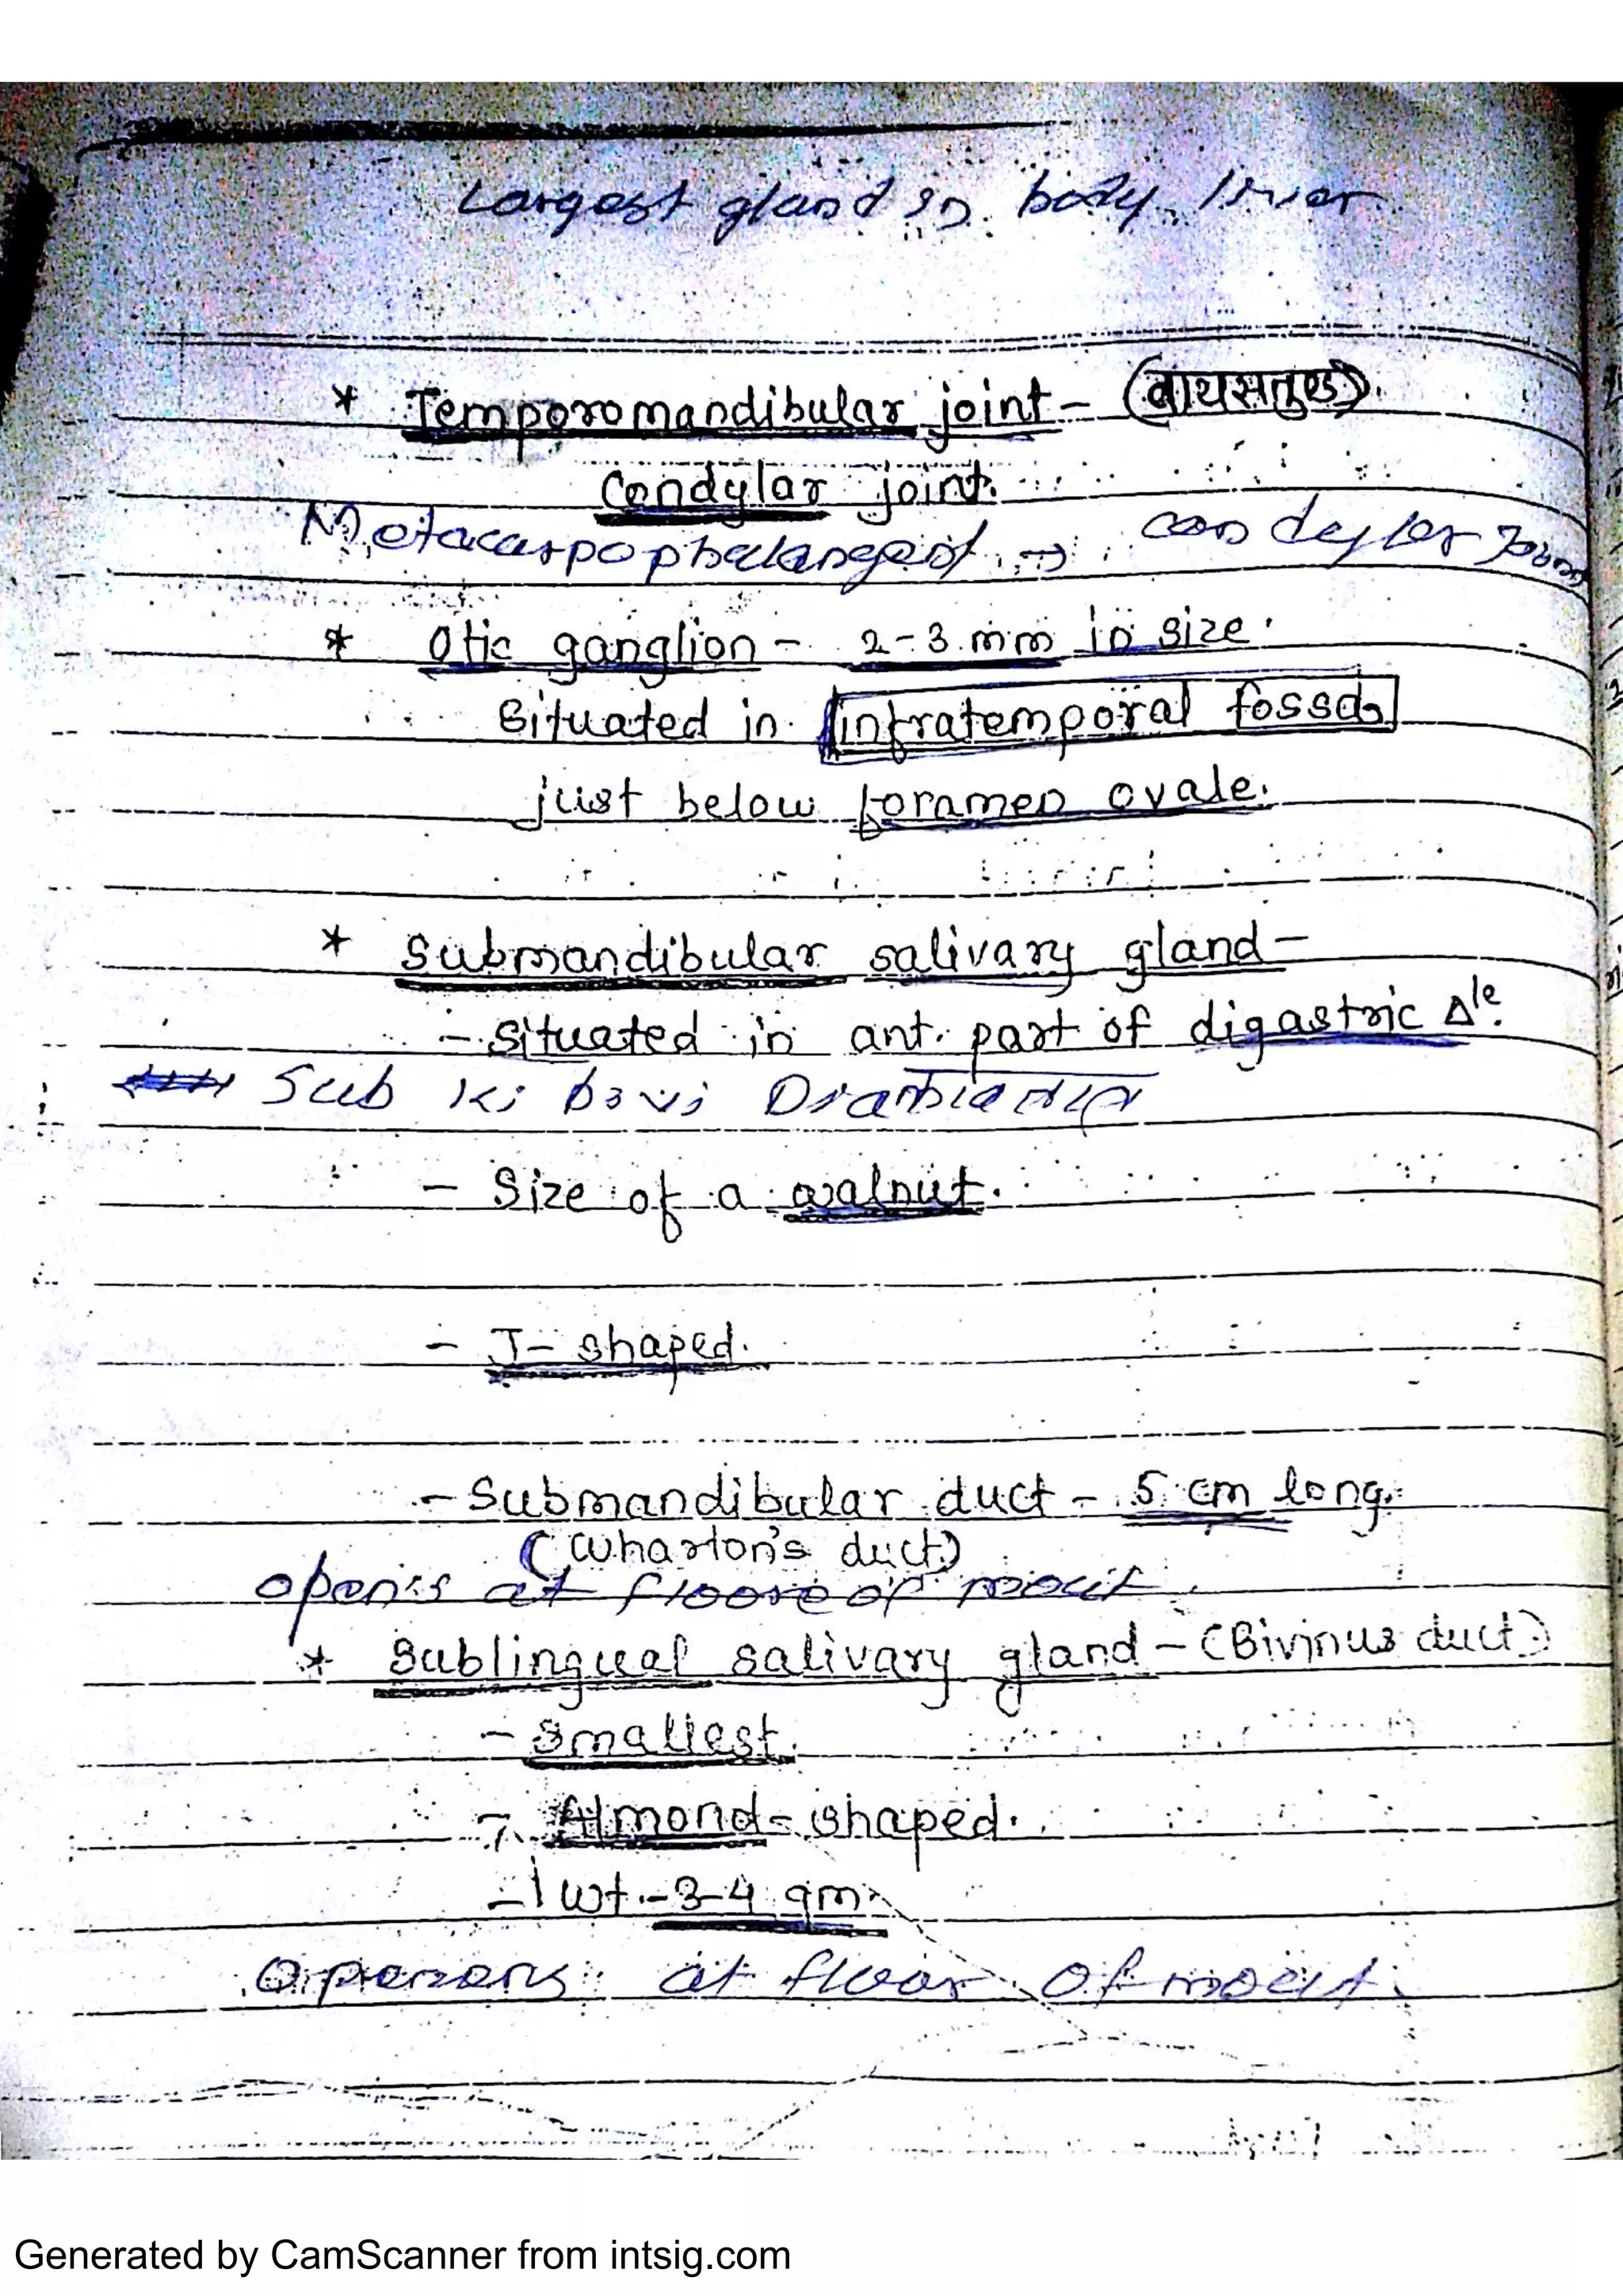 Largest gland in body liver
* Temporomandibular joint - (वायसतुण्ड).
Condylar joint.
Metacarpophalangeal → condyler
* Otic ganglion - 2-3 mm in size.
Situated in infratemporal fossa
just below foramen ovale.
* Submandibular salivary gland -
- Situated in ant. part of digastric Δle.
Sub ki bivi
- Size of a walnut.
- J- shaped.
- Submandibular duct - 5 cm long.
(Wharton's duct)
open's at floore of mout
* Sublingual salivary gland - (Bivinus duct)
- Smallest.
- Almond-shaped.
- wt.-3-4 gm
at floor of mout
Generated by CamScanner from intsig.com